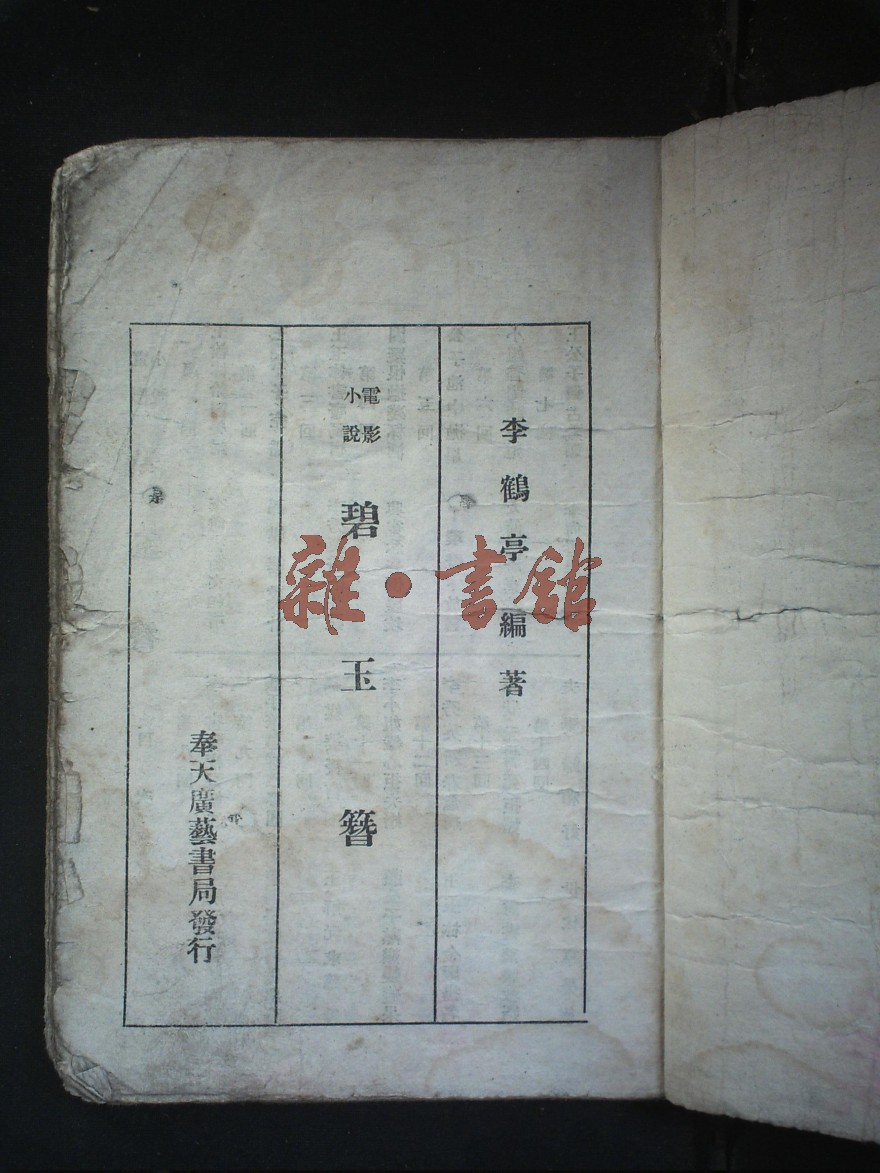 李鶴亭編著
電影
小說
碧玉簪
奉天廣藝書局發行
雜·書館